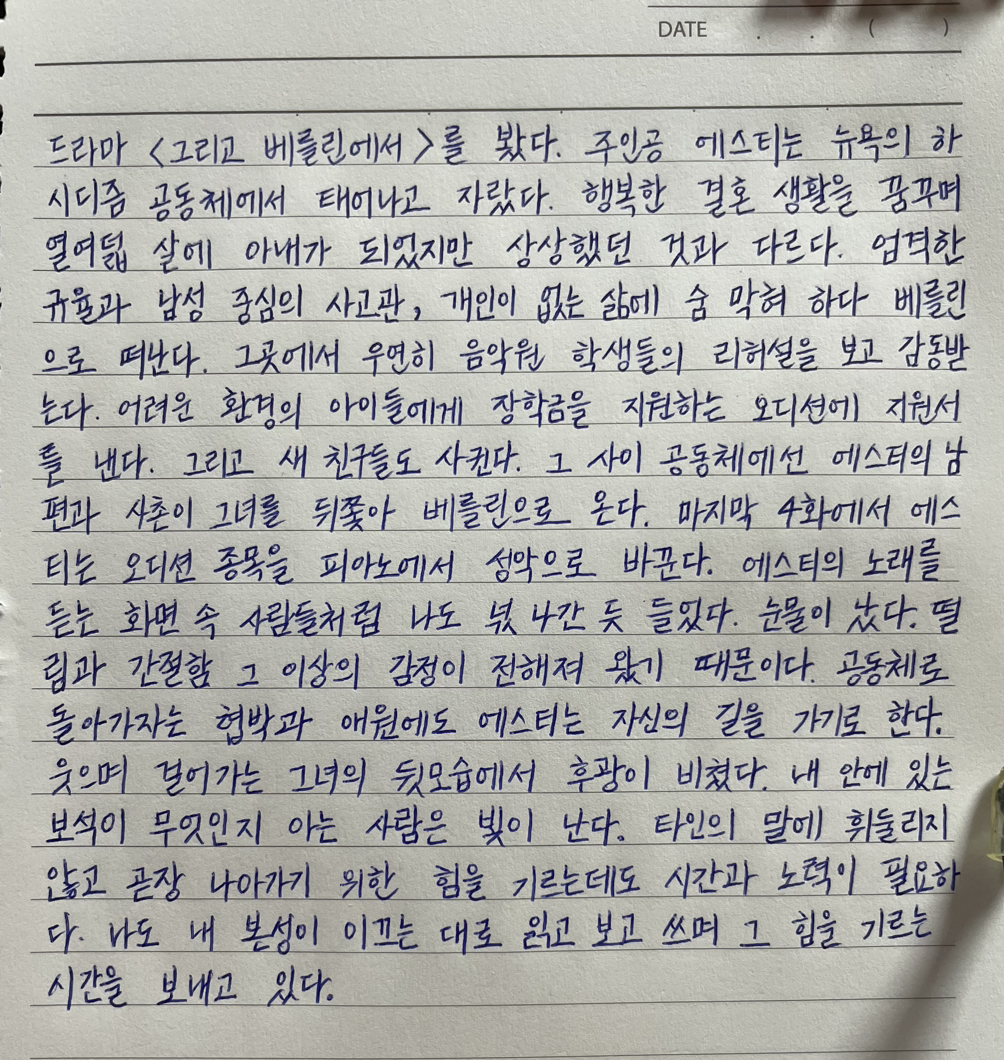 DATE . . ( )
드라마 <그리고 베를린에서>를 봤다. 주인공 에스티는 뉴욕의 하
시디즘 공동체에서 태어나고 자랐다. 행복한 결혼 생활을 꿈꾸며
열여덟 살에 아내가 되었지만 상상했던 것과 다르다. 엄격한
규율과 남성 중심의 사고관, 개인이 없는 삶에 숨 막혀 하다 베를린
으로 떠난다. 그곳에서 우연히 음악원 학생들의 리허설을 보고 감동받
는다. 어려운 환경의 아이들에게 장학금을 지원하는 오디션에 지원서
를 낸다. 그리고 새 친구들도 사귄다. 그 사이 공동체에선 에스티의 남
편과 사촌이 그녀를 뒤쫓아 베를린으로 온다. 마지막 4화에서 에스
티는 오디션 종목을 피아노에서 성악으로 바꾼다. 에스티의 노래를
듣는 화면 속 사람들처럼 나도 넋 나간 듯 들었다. 눈물이 났다. 떨
림과 간절함 그 이상의 감정이 전해져 왔기 때문이다. 공동체로
돌아가자는 협박과 애원에도 에스티는 자신의 길을 가기로 한다.
웃으며 걸어가는 그녀의 뒷모습에서 후광이 비쳤다. 내 안에 있는
보석이 무엇인지 아는 사람은 빛이 난다. 타인의 말에 휘둘리지
않고 곧장 나아가기 위한 힘을 기르는데도 시간과 노력이 필요하
다. 나도 내 본성이 이끄는 대로 읽고 보고 쓰며 그 힘을 기르는
시간을 보내고 있다.